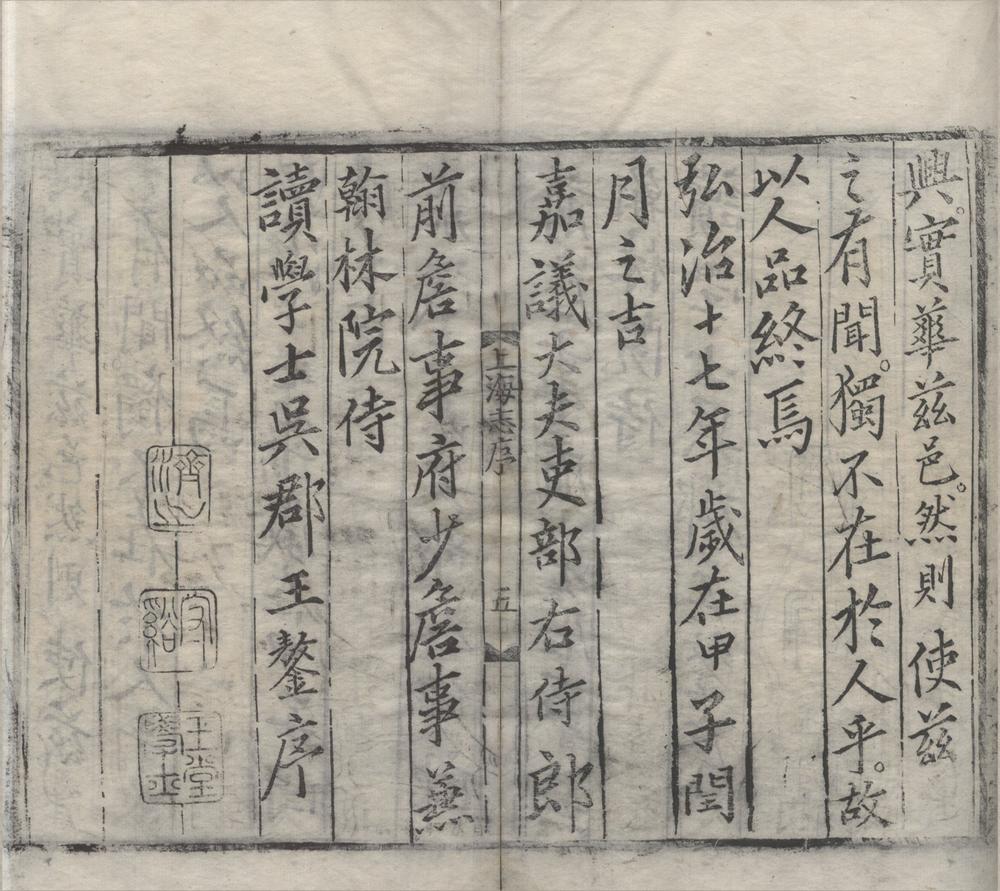 興。實華茲邑。然則使茲
之有聞。獨不在於人乎。故
以人品終焉
弘治十七年歲在甲子閏
月之吉
嘉議大夫吏部右侍郎
上海志序 五
前詹事府少詹事兼
翰林院侍
讀學士吳郡王鏊序
濟之
守谿
玉堂學士